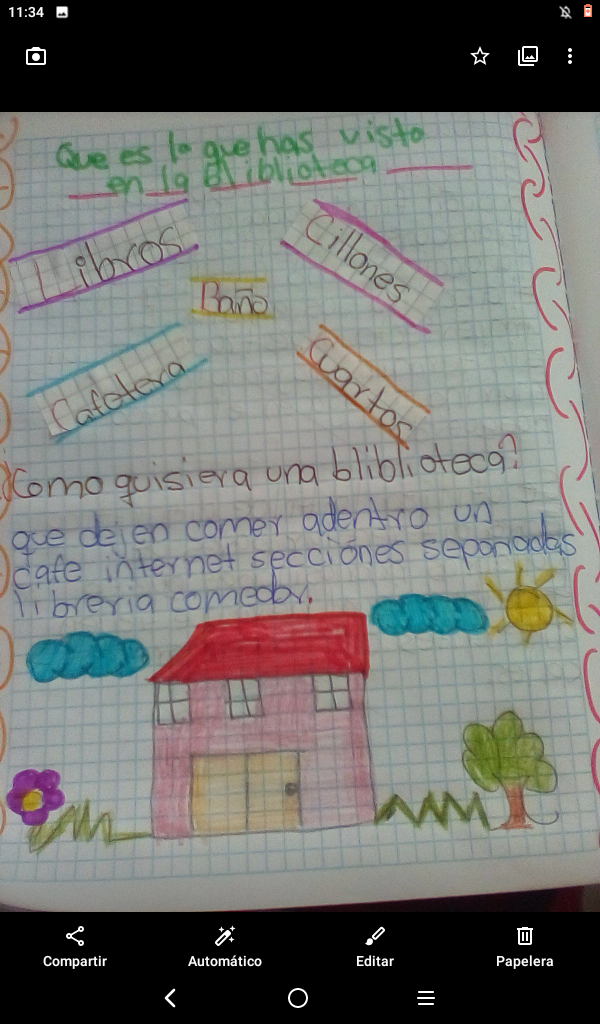 11:34
Que es lo que has visto
en la Bliblioteca
Libros
Cillones
Baño
Cafetera
Cuartos
Como quisiera una bliblioteca?
que dejen comer adentro un
cafe internet secciónes separadas
libreria comedor.
Compartir
Automático
Editar
Papelera